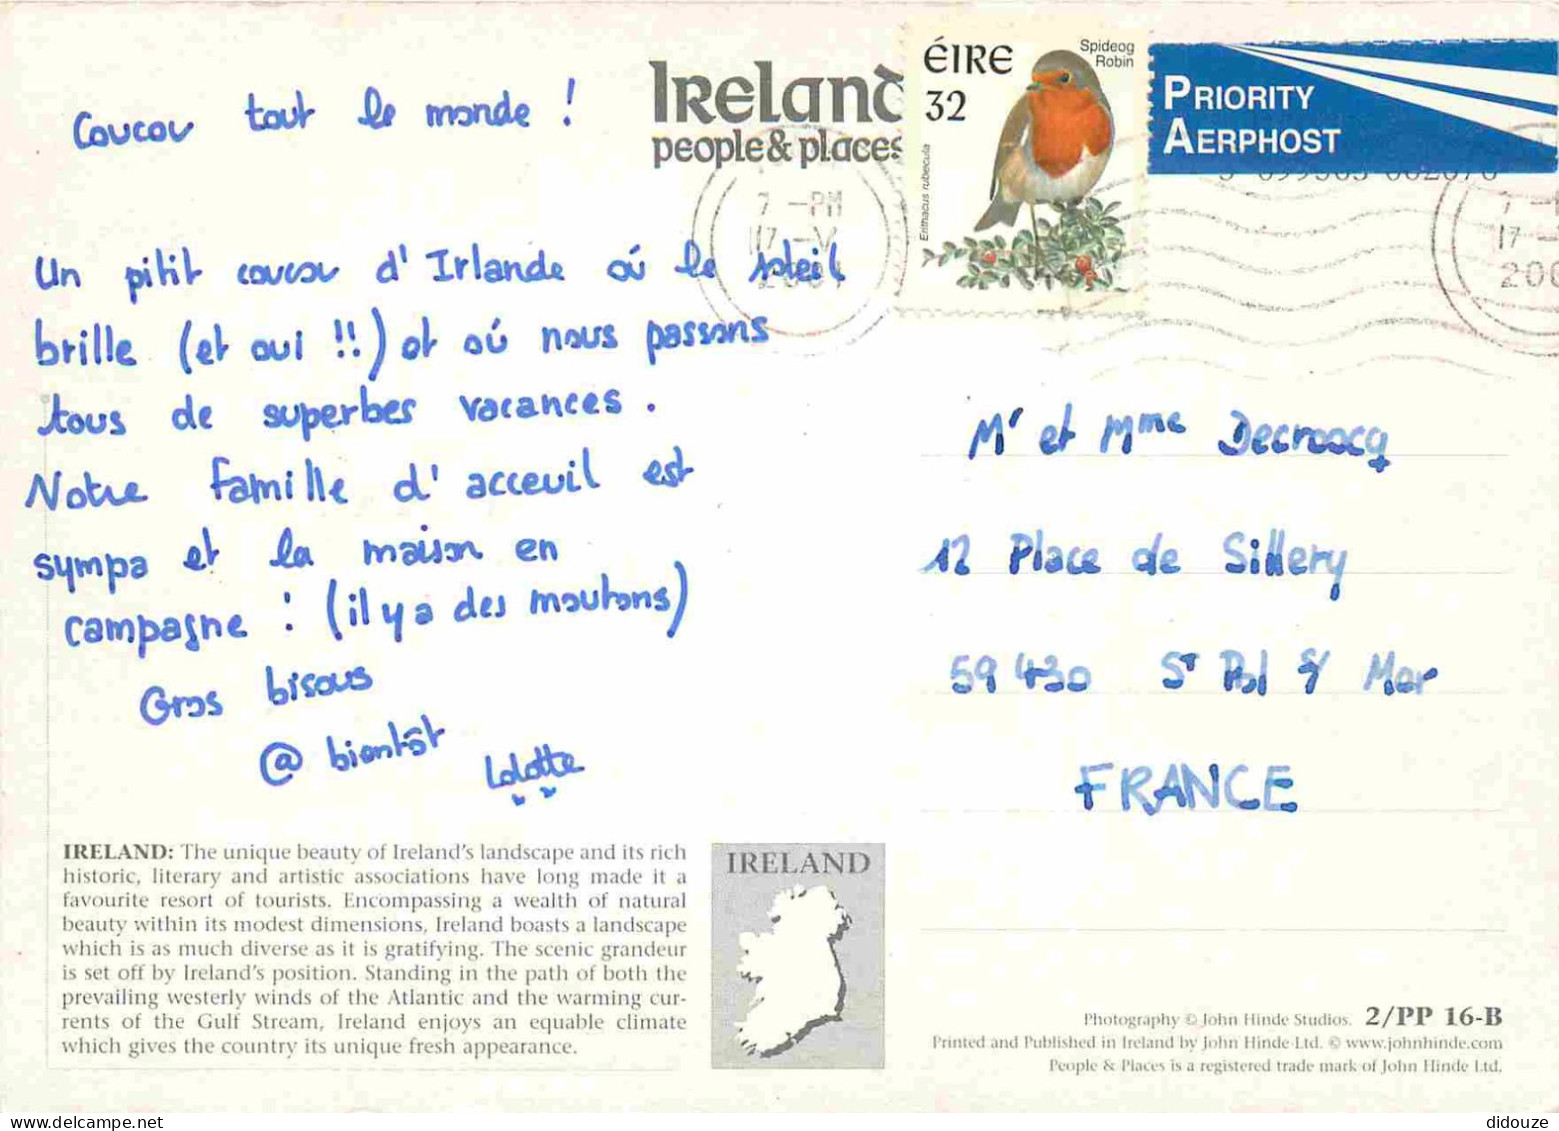 Ireland
people & places
ÉIRE
32
Spideog
Robin
Erithacus rubecula
PRIORITY
AERPHOST
7 -PM
17 -V
200
Coucou tout le monde !
Un pitit coucou d'Irlande où le soleil
brille (et oui !!) et où nous passons
tous de superbes vacances.
Notre famille d'acceuil est
sympa et la maison en
campagne : (il y a des moutons)
Gros bisous
@ bientôt
Lolotte
Mr et Mme Decroocq
12 Place de Sillery
59 430 St Pol s/ Mer
FRANCE
IRELAND: The unique beauty of Ireland's landscape and its rich
historic, literary and artistic associations have long made it a
favourite resort of tourists. Encompassing a wealth of natural
beauty within its modest dimensions, Ireland boasts a landscape
which is as much diverse as it is gratifying. The scenic grandeur
is set off by Ireland's position. Standing in the path of both the
prevailing westerly winds of the Atlantic and the warming cur-
rents of the Gulf Stream, Ireland enjoys an equable climate
which gives the country its unique fresh appearance.
IRELAND
Photography © John Hinde Studios. 2/PP 16-B
Printed and Published in Ireland by John Hinde Ltd. © www.johnhinde.com
People & Places is a registered trade mark of John Hinde Ltd.
didouze